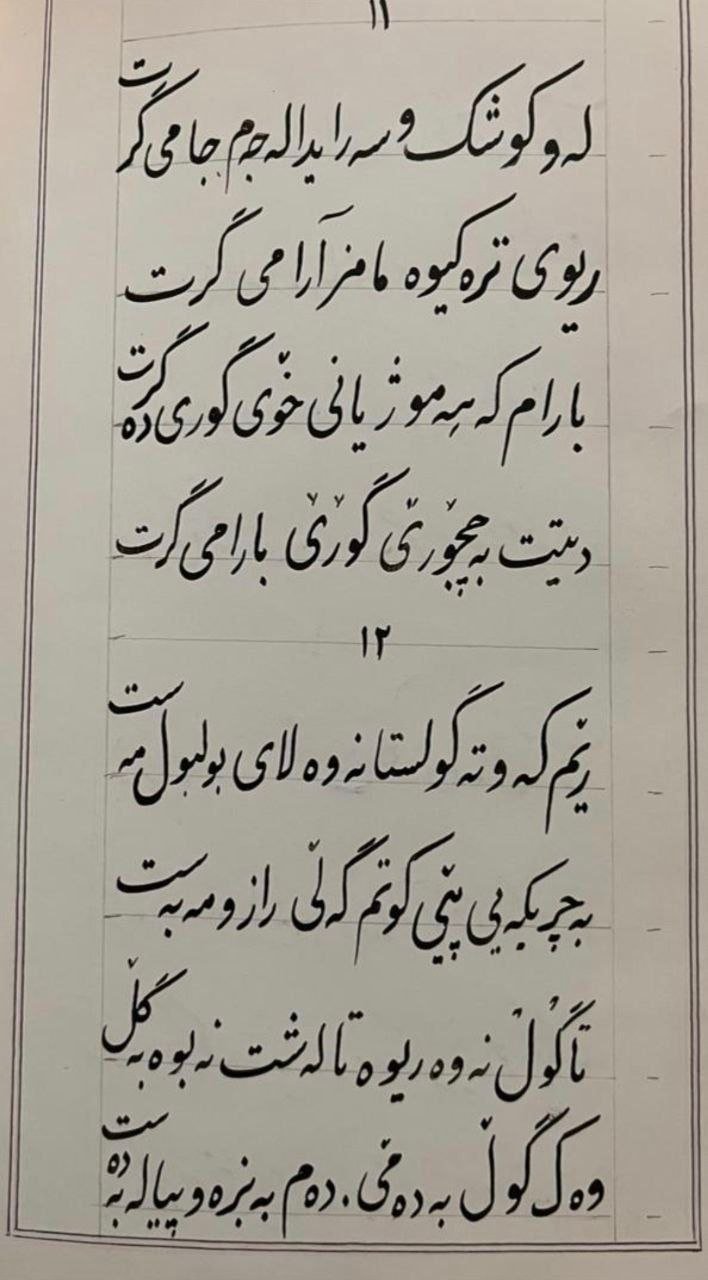 ١١
لەو کوشک و سەرایدا لە جەم جامی گرت
ریوی ترەکیوە مامز آرامی گرت
بارام کە هەمو ژیانی خۆی گوری دەگرت
دیتت بە چجۆرێ گۆڕێ بارامی گرت
١٢
رێم کەوتە گولستانەوە لای بولبول مەست
بە چریکەیی پێی کوتم گەلێ راز و مەبەست
تا گوڵ نەوەریوە تا لەشت نەبوە بە گڵ
وەک گوڵ بە دەمی. دەم بە بزە و پیالە بە دەست